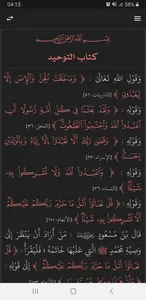 04:13
بسم الله الرحمن الرحيم
كتاب التوحيد
وَقَوْلِ اللهِ تَعَالَى : ﴿ وَمَا خَلَقْتُ الْجِنَّ وَالْإِنْسَ إِلَّا
لِيَعْبُدُونِ ﴾ [الذاريات: ٥٦]
وَقَوْلِهِ : ﴿ وَلَقَدْ بَعَثْنَا فِي كُلِّ أُمَّةٍ رَسُولًا أَنِ
اعْبُدُوا اللَّهَ وَاجْتَنِبُوا الطَّاغُوتَ ﴾ [النحل: ٣٦]
وَقَوْلِهِ : ﴿ وَقَضَى رَبُّكَ أَلَّا تَعْبُدُوا إِلَّا إِيَّاهُ وَبِالْوَالِدَيْنِ
إِحْسَانًا ﴾ [الإسراء: ٢٣]
وَقَوْلِهِ : ﴿ وَاعْبُدُوا اللَّهَ وَلَا تُشْرِكُوا بِهِ
شَيْئًا ﴾ [النساء: ٣٦]
وَقَوْلِهِ : ﴿ قُلْ تَعَالَوْا أَتْلُ مَا حَرَّمَ رَبُّكُمْ عَلَيْكُمْ
أَلَّا تُشْرِكُوا بِهِ شَيْئًا ﴾ [الأنعام: ١٥١]
قَالَ ابْنُ مَسْعُودٍ : مَنْ أَرَادَ أَنْ يَنْظُرَ إِلَى
وَصِيَّةِ مُحَمَّدٍ ﷺ الَّتِي عَلَيْهَا خَاتَمُهُ ؛ فَلْيَقْرَأْ :
﴿ قُلْ تَعَالَوْا أَتْلُ مَا حَرَّمَ رَبُّكُمْ عَلَيْكُمْ
أَلَّا تُشْرِكُوا بِهِ شَيْئًا ﴾ إِلَى قَوْلِهِ :